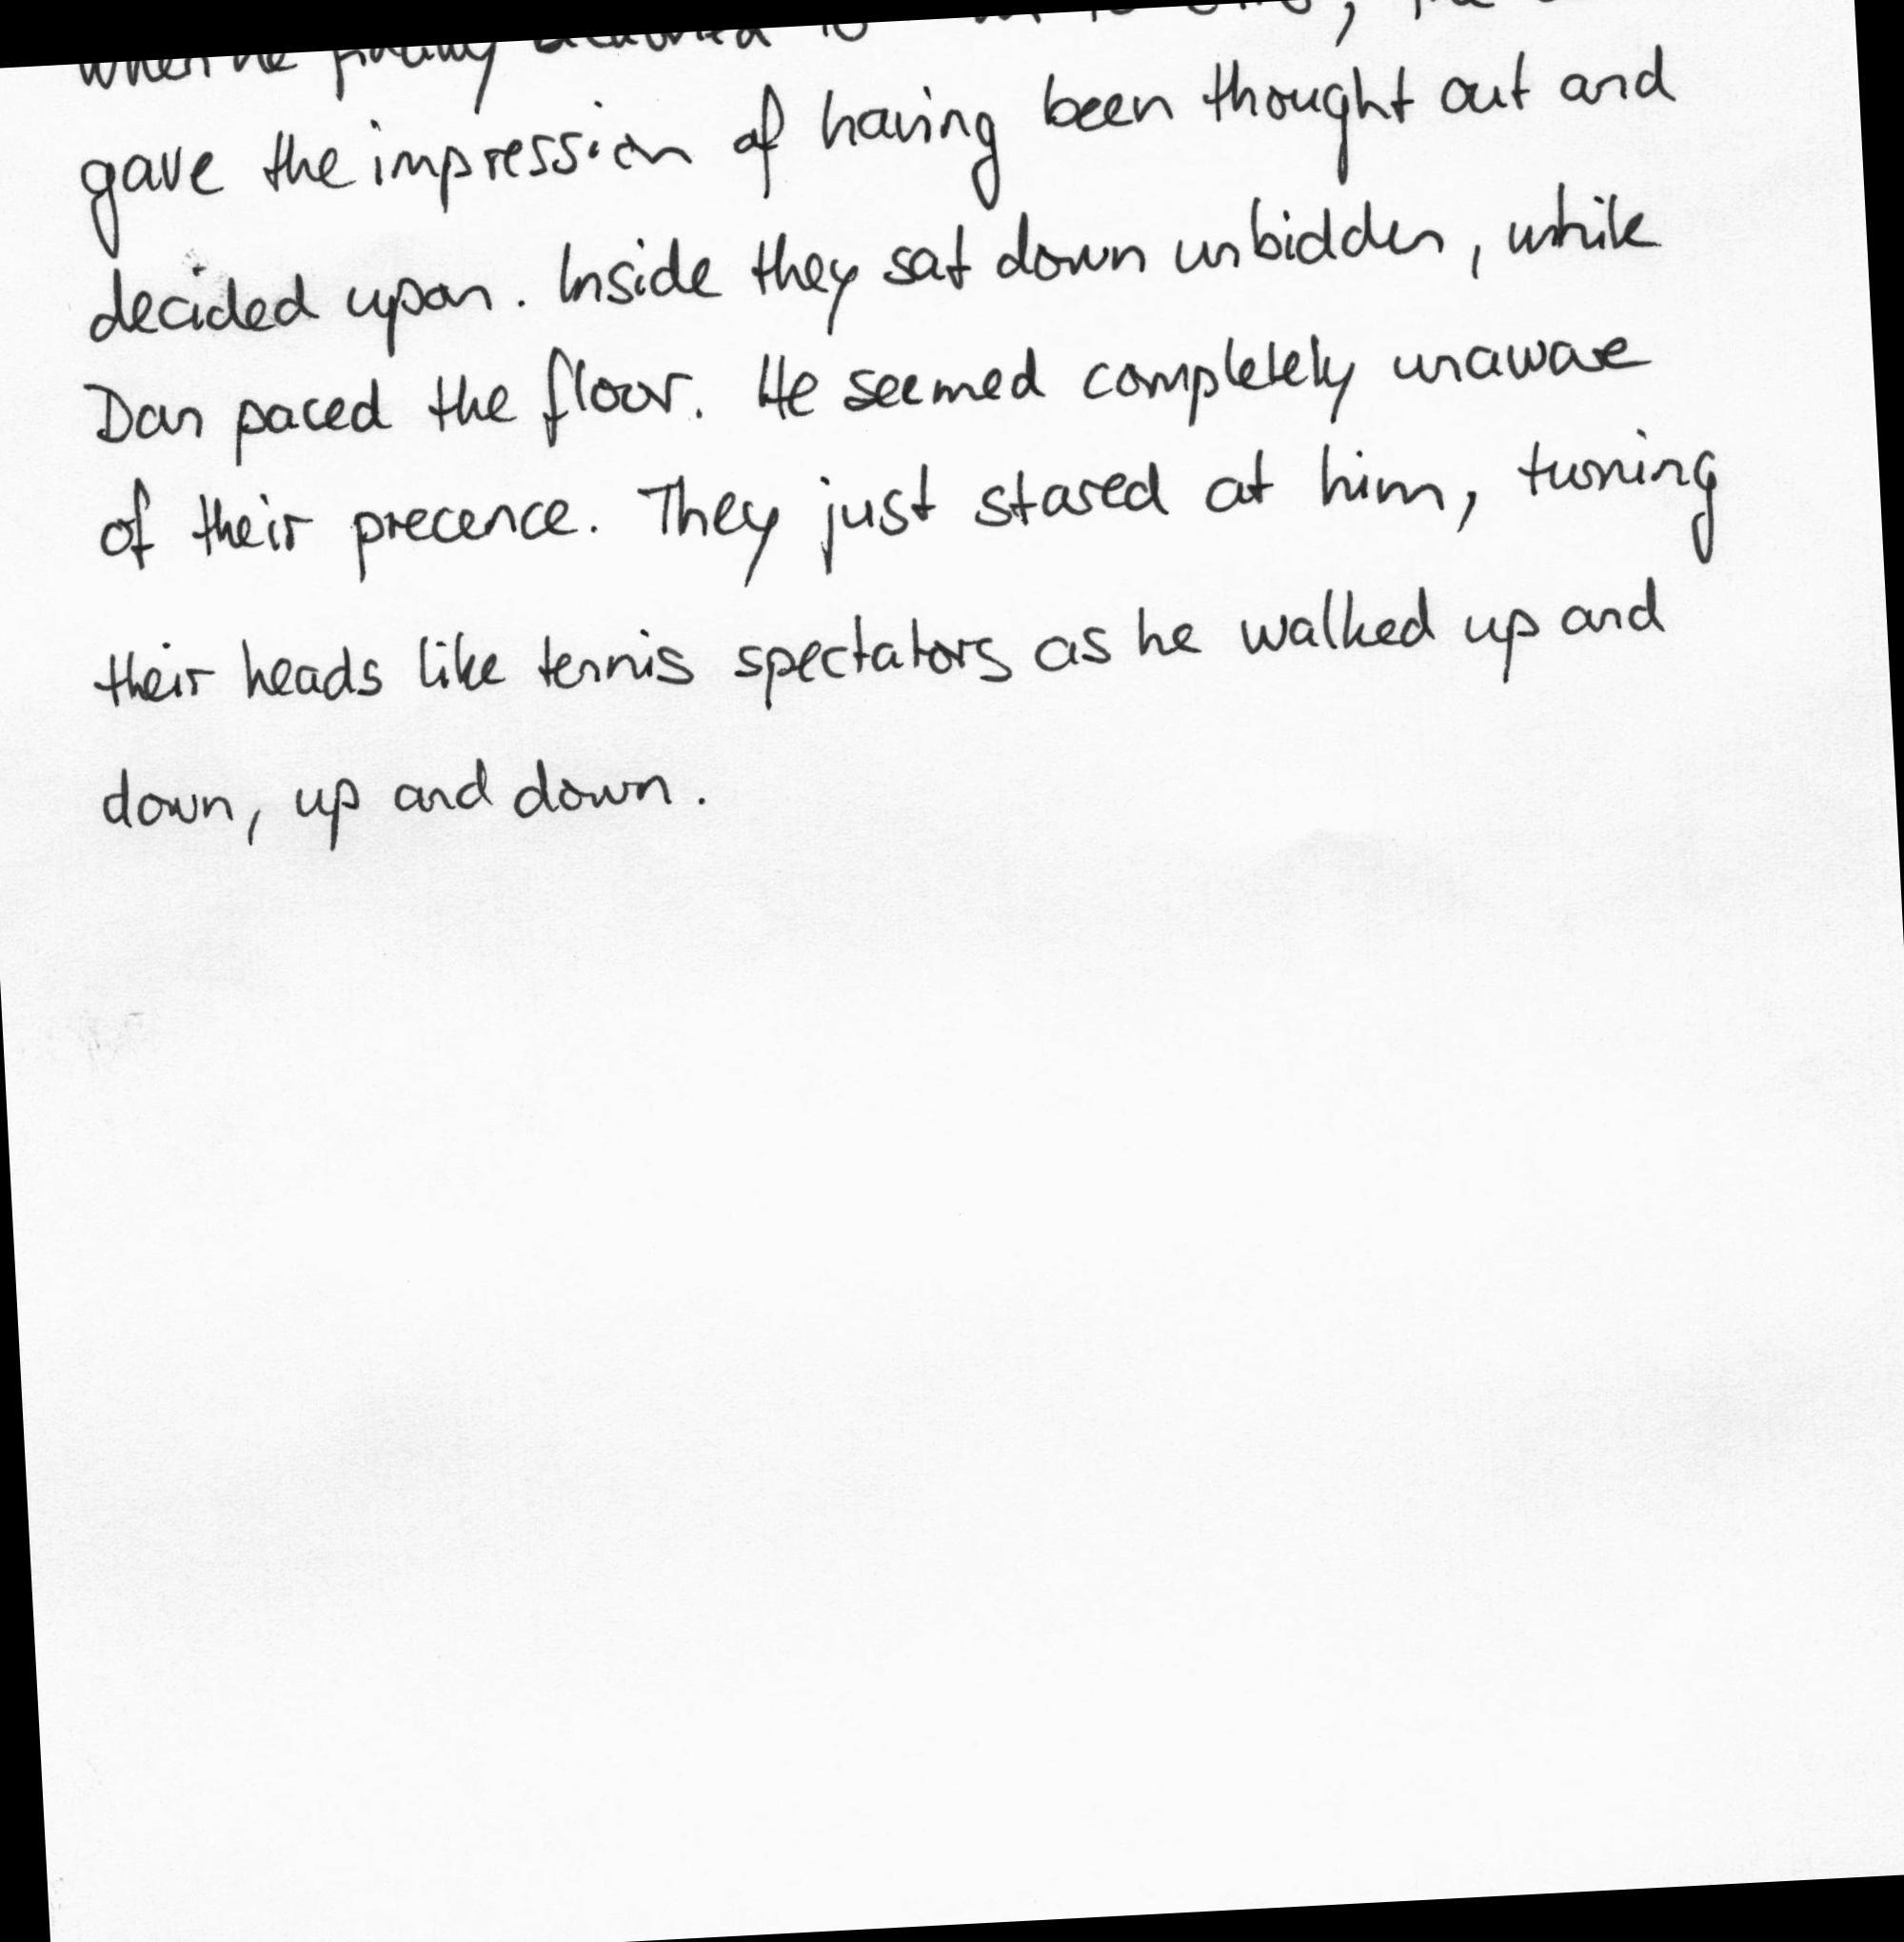 when he finally beckoned to
gave the impression of having been thought out and
decided upon. Inside they sat down unbidden, while
Dan paced the floor. He seemed completely unaware
of their precence. They just stared at him, turning
their heads like tennis spectators as he walked up and
down, up and down.